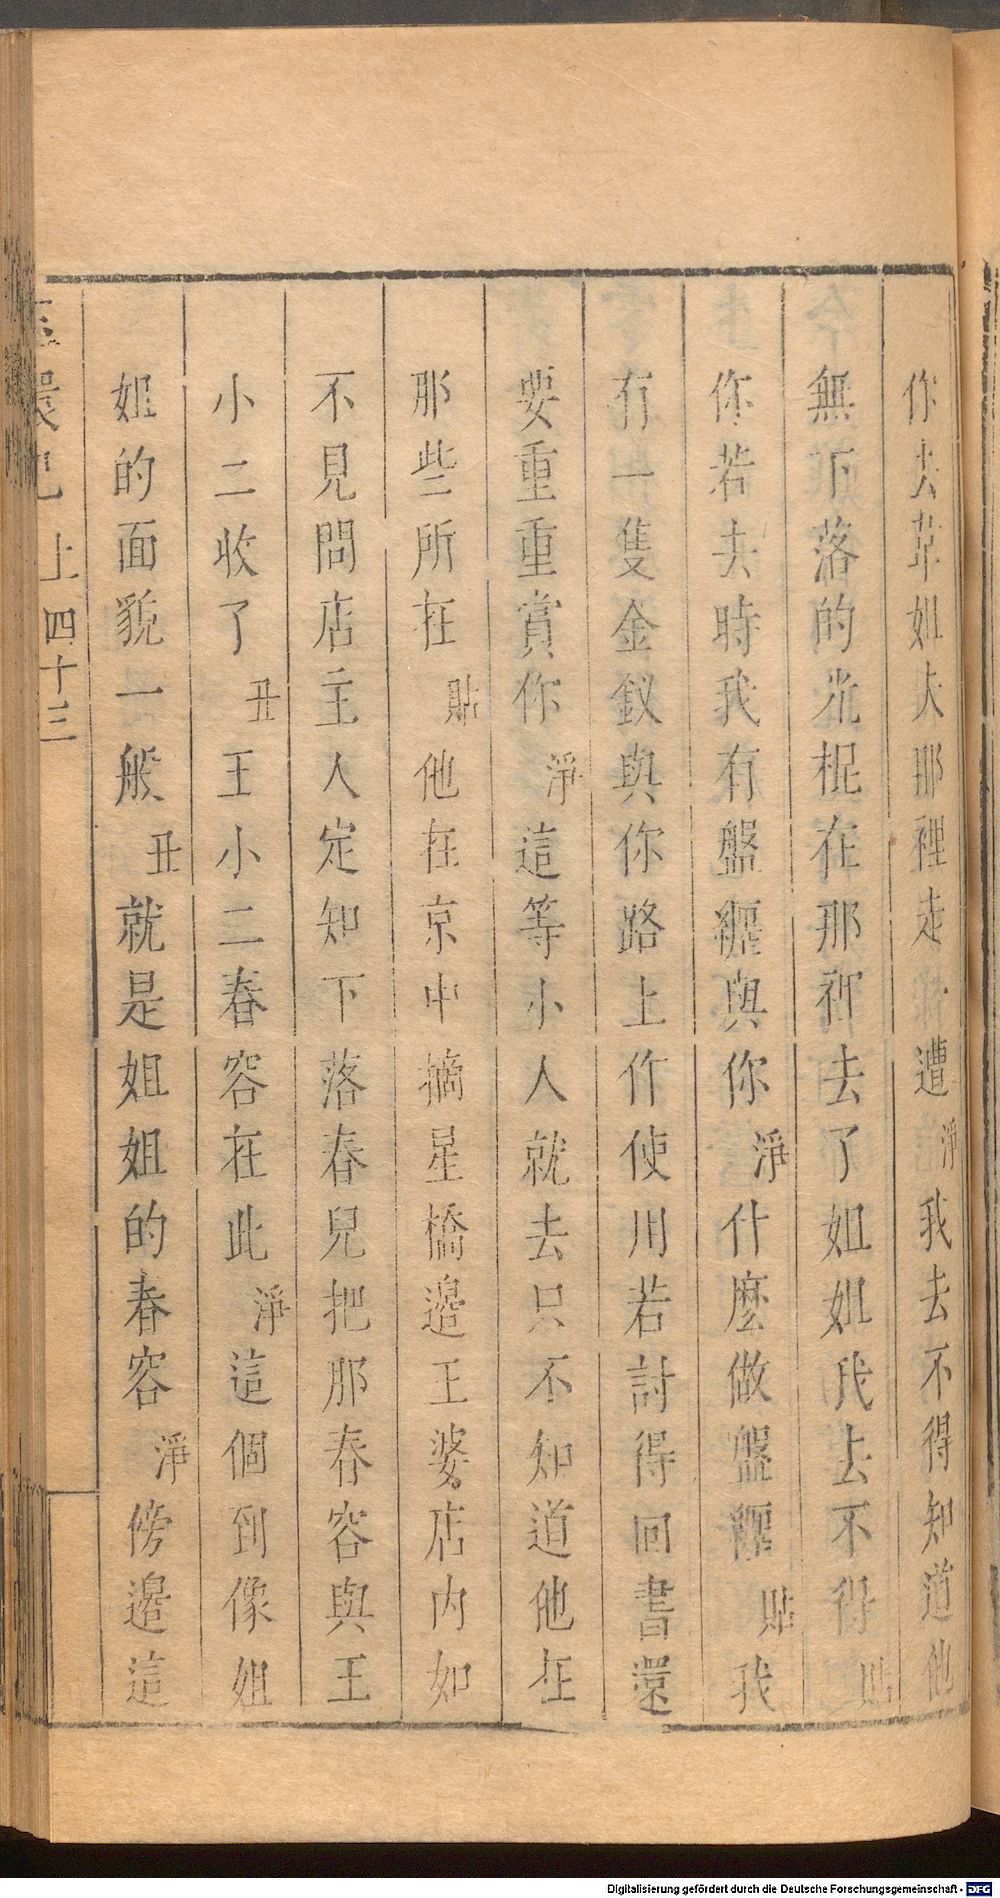 你去韋姐夫那裡走遭淨我去不得知道他
無下落的光棍在那裡去了姐姐我去不得貼
你若去時我有盤纏與你淨什麼做盤纏貼我
有一隻金釵與你路上作使用若討得回書還
要重重賞你淨這等小人就去只不知道他在
那些所在貼他在京中摘星橋邉王婆店內如
不見問店主人定知下落春兒把那春容與王
小二收了丑王小二春容在此淨這個到像姐
姐的面貌一般丑就是姐姐的春容淨傍邉這
環記 上 四十三
Digitalisierung gefördert durch die Deutsche Forschungsgemeinschaft - DFG